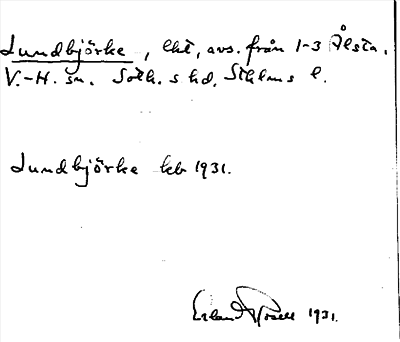 Lundbjörke, lht, avs. från 1-3 Ålsta,
V.-H. sn. Soth. s hd. Sthlms l.
Lundbjörke kb 1931.
Erland Rosell 1931.